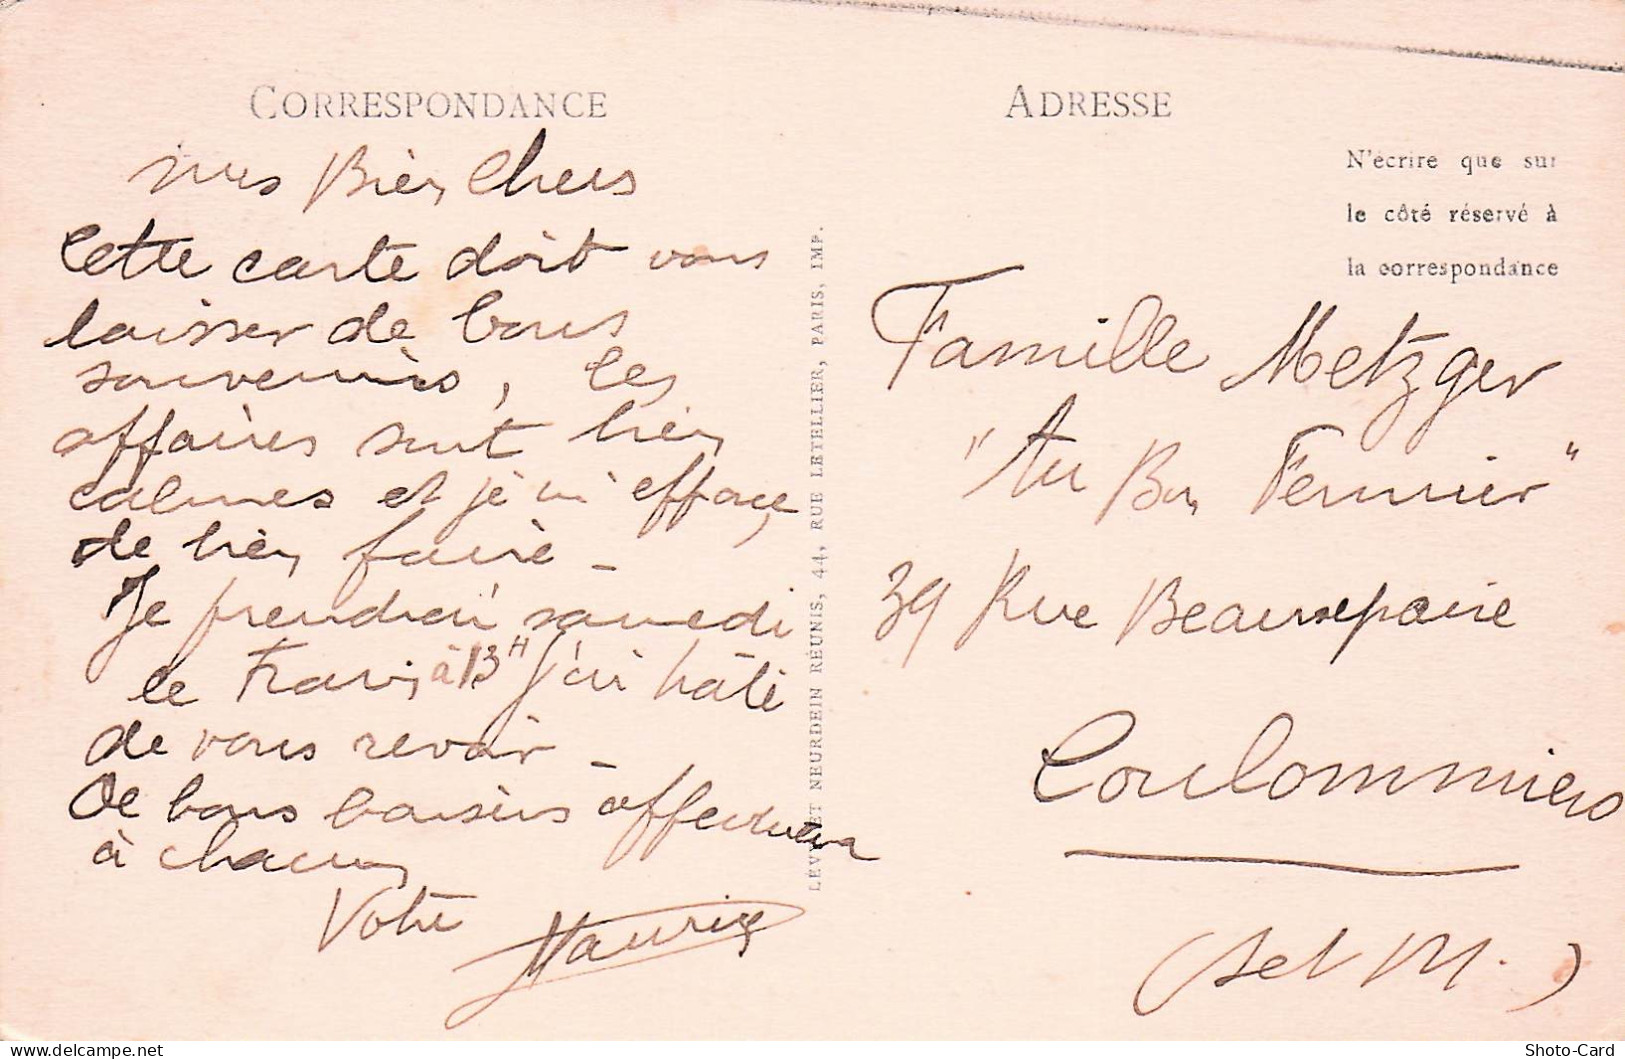 CORRESPONDANCE
Mes Bien Chers
Cette carte doit vous
laisser de bons
souvenirs, les
affaires sont bien
calmes et je m'efforce,
de bien faire _
Je prendrai samedi
le train à 13H j'ai hâte
de vous revoir _
De bons baisers affectueux
à chacun
Votre Maurice
LÉVY ET NEURDEIN RÉUNIS, 44, RUE LETELLIER, PARIS, IMP.
ADRESSE
N'écrire que sur
le côté réservé à
la correspondance
Famille Metzger
"Au Bon Fermier"
39 Rue Beaurepaire
Coulommiers
(S et M.)
Shoto-Card
www.delcampe.net